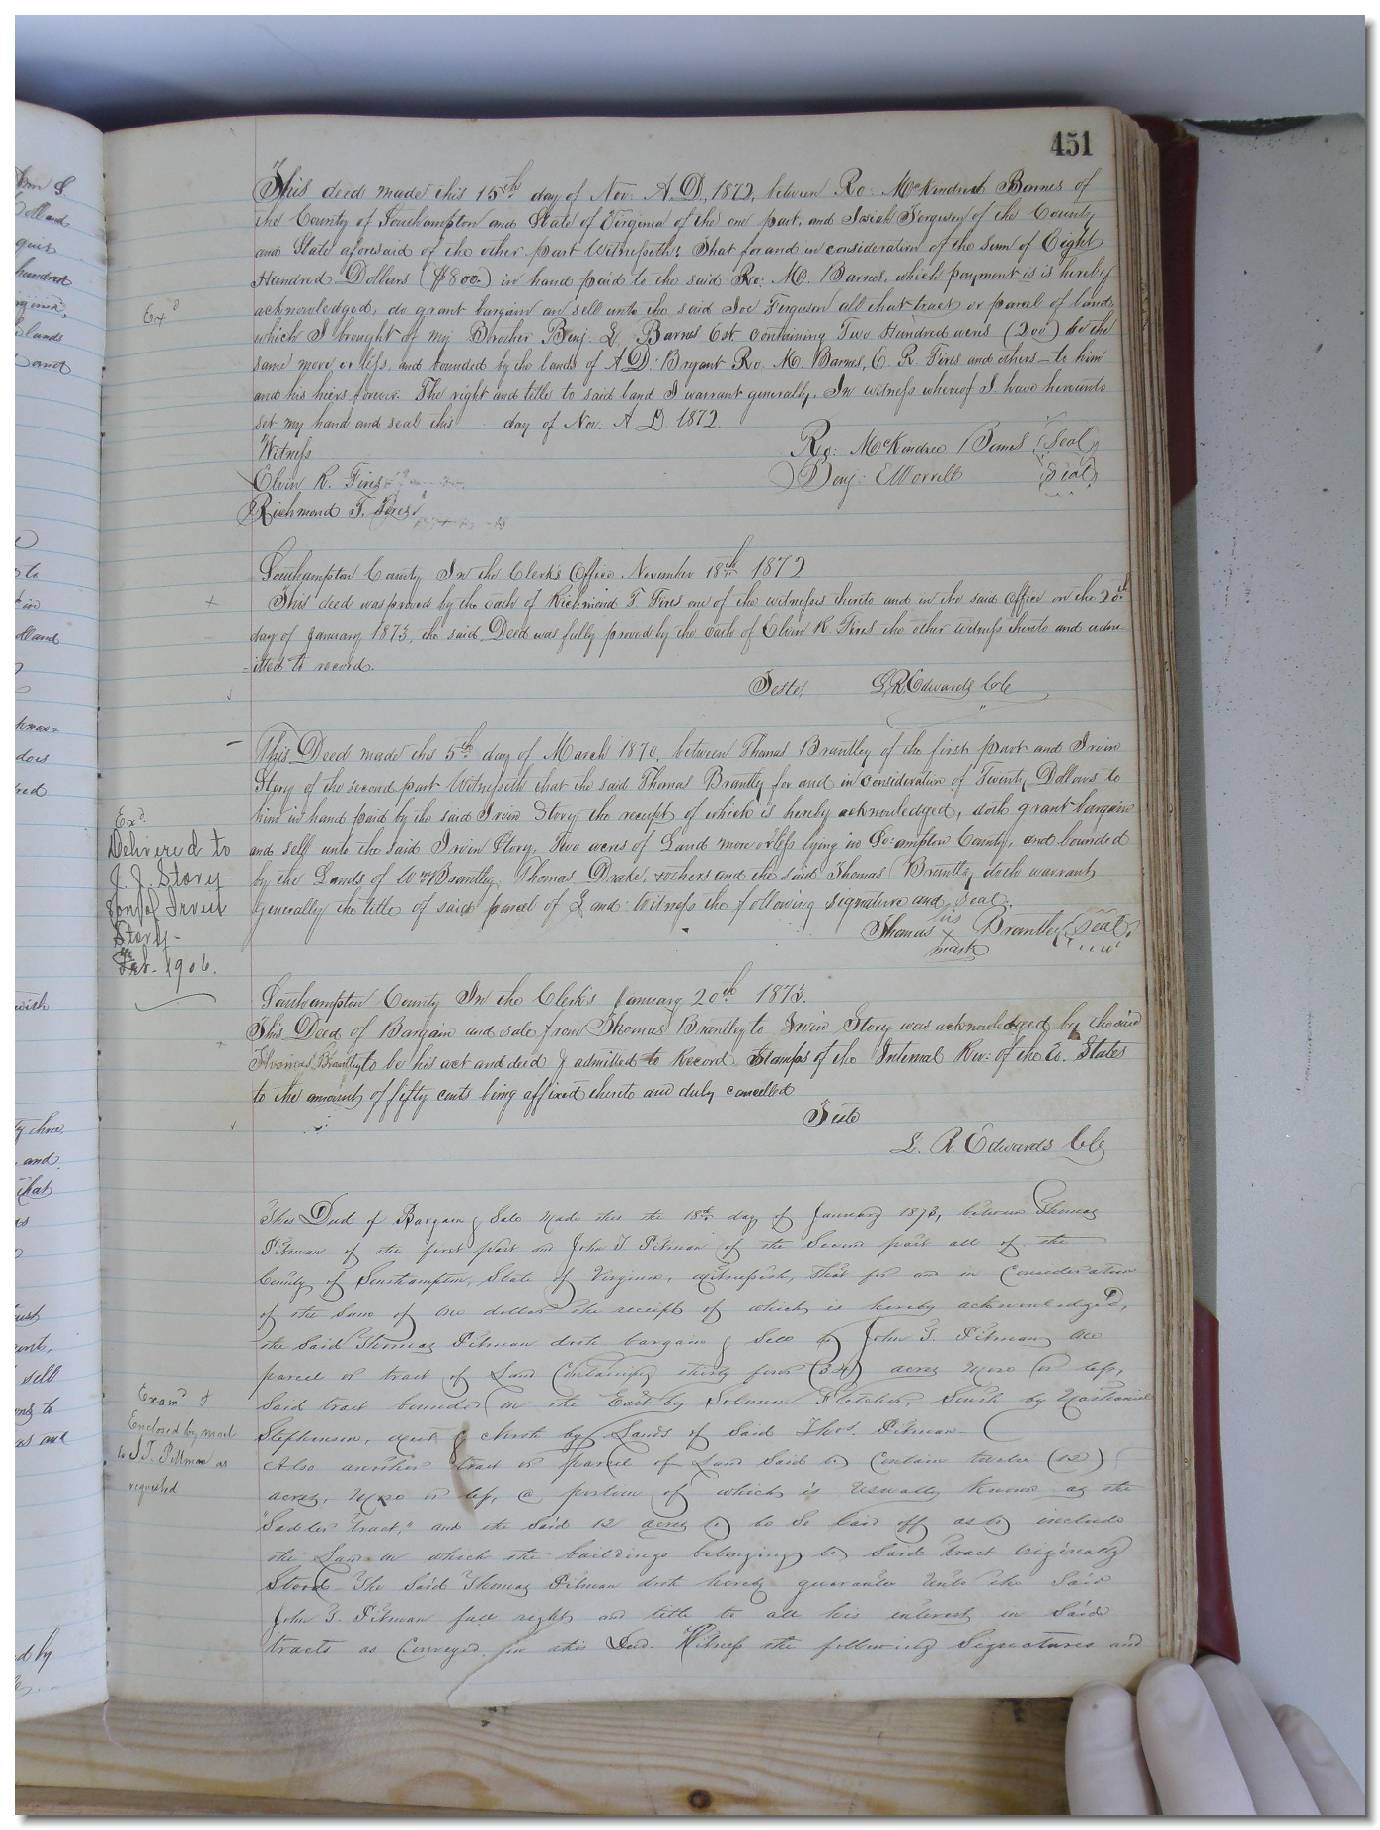 451
This deed made this 15th day of Nov: A.D. 1872, between Ro: McKendree Barnes of
the County of Southampton and State of Virginia of the one part, and Josiah Ferguson of the County
and State aforesaid of the other part Witnesseth: That for and in consideration of the sum of Eight
Hundred Dollars ($800) in hand paid to the said Ro: M. Barnes, which payment is is hereby
acknowledged, do grant bargain an sell unto the said Joe Ferguson all that tract or parcel of land
which I bought of my Brother Benj. D. Barnes Est. Containing Two Hundred acres (200) be the
same more or less, and bounded by the lands of A.D. Bryant Ro. M. Barnes, E. R. Fires and others – to him
and his hiers forever. The right and title to said land I warrant generally. In witness whereof I have hereunto
set my hand and seal this day of Nov. A D 1872.
Witness Ro: McKendree Barnes (Seal)
Elvin R. Fires Benj: E Worrell (Seal)
Richmond T. Fires
Exd
Southampton County In the Clerk's Office November 18th 1872
This deed was proved by the oath of Richmond T. Fires one of the witnesses thereto and in the said Office on the 20th
day of January 1873, the said Deed was fully proved by the oath of Elvin R Fires the other witness thereto and adm-
-itted to record.
Teste, L.R. Edwards Clk
This Deed made this 5th day of March 1870, between Thomas Brantley of the first part and Irvin
Story of the second part Witnesseth that the said Thomas Brantley for and in consideration of Twenty Dollars to
him in hand paid by the said Irvin Story the receipt of which is hereby acknowledged, doth grant bargain
and sell unto the said Irvin Story, Two acres of Land more or less lying in So: ampton County, and bounded
by the Lands of Wm Brantley, Thomas Drake, & others and the said Thomas Brantley doth warrant
generally the title of said parcel of Land. Witness the following signature and seal.
Thomas his x mark Brantley (Seal)
Exd
Delivered to
J. J. Story
son of Irvin
Story -
Feb. 1906.
Southampton County In the Clerks January 20th 1873.
This Deed of Bargain and sale from Thomas Brantley to Irvin Story was acknowledged by the said
Thomas Brantley to be his act and deed & admitted to Record Stamps of the Internal Rev: of the U. States
to the amount of fifty cents being affixed thereto and duly cancelled
Teste
L. R. Edwards Clk
This Deed of Bargain & Sale made this the 18th day of January 1873, between Thomas
Pitman of the first part and John T Pitman of the Second part all of the
County of Southampton, State of Virginia, witnesseth, that for and in Consideration
of the Sum of one dollar the receipt of which is hereby acknowledged,
the Said Thomas Pitman doth bargain & Sell to John T. Pitman one
parcel or tract of Land Containing thirty four (34) acres more or less,
Said tract bounded on the East by Solomon Fletcher, South by Nathaniel
Stephenson, West & North by Lands of Said Thos. Pitman.
Also another tract or parcel of Land Said to Contain twelve (12)
acres, More or less, a portion of which is Usually Known as the
"Sadler tract," and the Said 12 acres to be So laid off as to include
the Land on which the buildings belonging to Said tract Originally
Stood The Said Thomas Pitman doth hereby guarantee Unto the Said
John T. Pitman full right and title to all his interest in Said
tracts as Conveyed in this Deed. Witness the following Signatures and
Examd &
Enclosed by mail
to J.T. Pittman as
requested